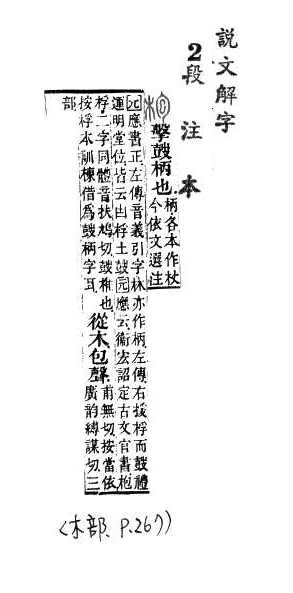 說文解字
2段注本
枹
擊鼓柄也
柄各本作杖
今依文選注
元應書正左傳音義引字林亦作柄左傳右援桴而鼓禮
運明堂位皆云凷桴土鼓元應云衞宏詔定古文官書枹
桴二字同體音扶鳩切鼓椎也
按桴本訓棟借爲鼓柄字耳
從木包聲
甫無切按當依
廣韵縛謀切三
部
<木部、P.267>